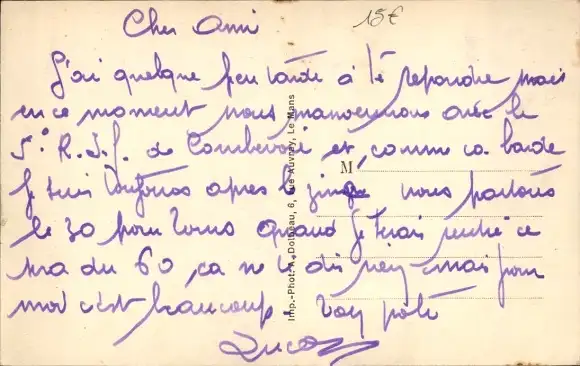 Cher Ami
15€
J'ai quelque peu tardé à te repondre mais
en ce moment nous manoeuvrons avec le
5e R.I. de et comme ca barde
Je suis toujours apres le nous partons
le 30 pour quand Je serai rentré ce
sera du 60, ca ne te dis rien mais pour
moi c'est beaucoup. Ton pote
M
Imp.-Phot. A. Dolbeau, 6, Rue Auvray, Le Mans